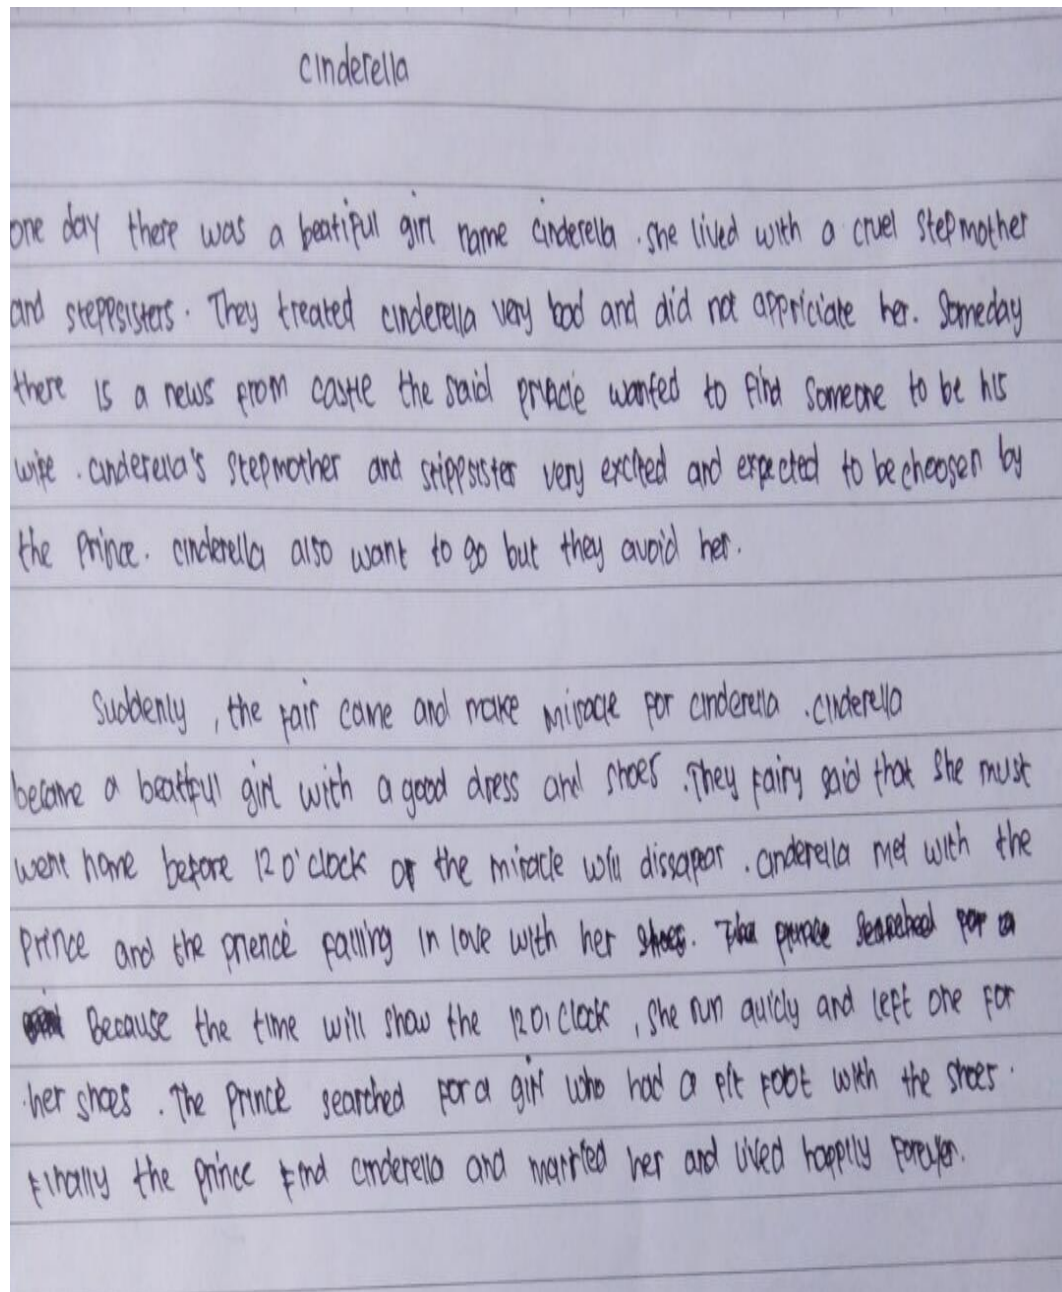 cinderella
one day there was a beatiful girl name cinderella . she lived with a cruel stepmother
and steppsisters . They treated cinderella very bad and did not appriciate her. Someday
there is a news from castle the said princie wanted to find someone to be his
wife . cinderella's stepmother and stippsister very excited and expected to be choosen by
the prince. cinderella also want to go but they avoid her.
Suddenly , the fair came and make miracle for cinderella . cinderella
became a beatiful girl with a good dress and shoes . They fairy said that she must
went home before 12 o'clock or the miracle will dissapear . cinderella met with the
prince and the prience falling in love with her shoes. The prince searched for a
Because the time will show the 12 o'clock , she run quicly and left one for
her shoes . The prince searched for a girl who had a fit foot with the shoes .
Finally the prince find cinderella and married her and lived happily forever.